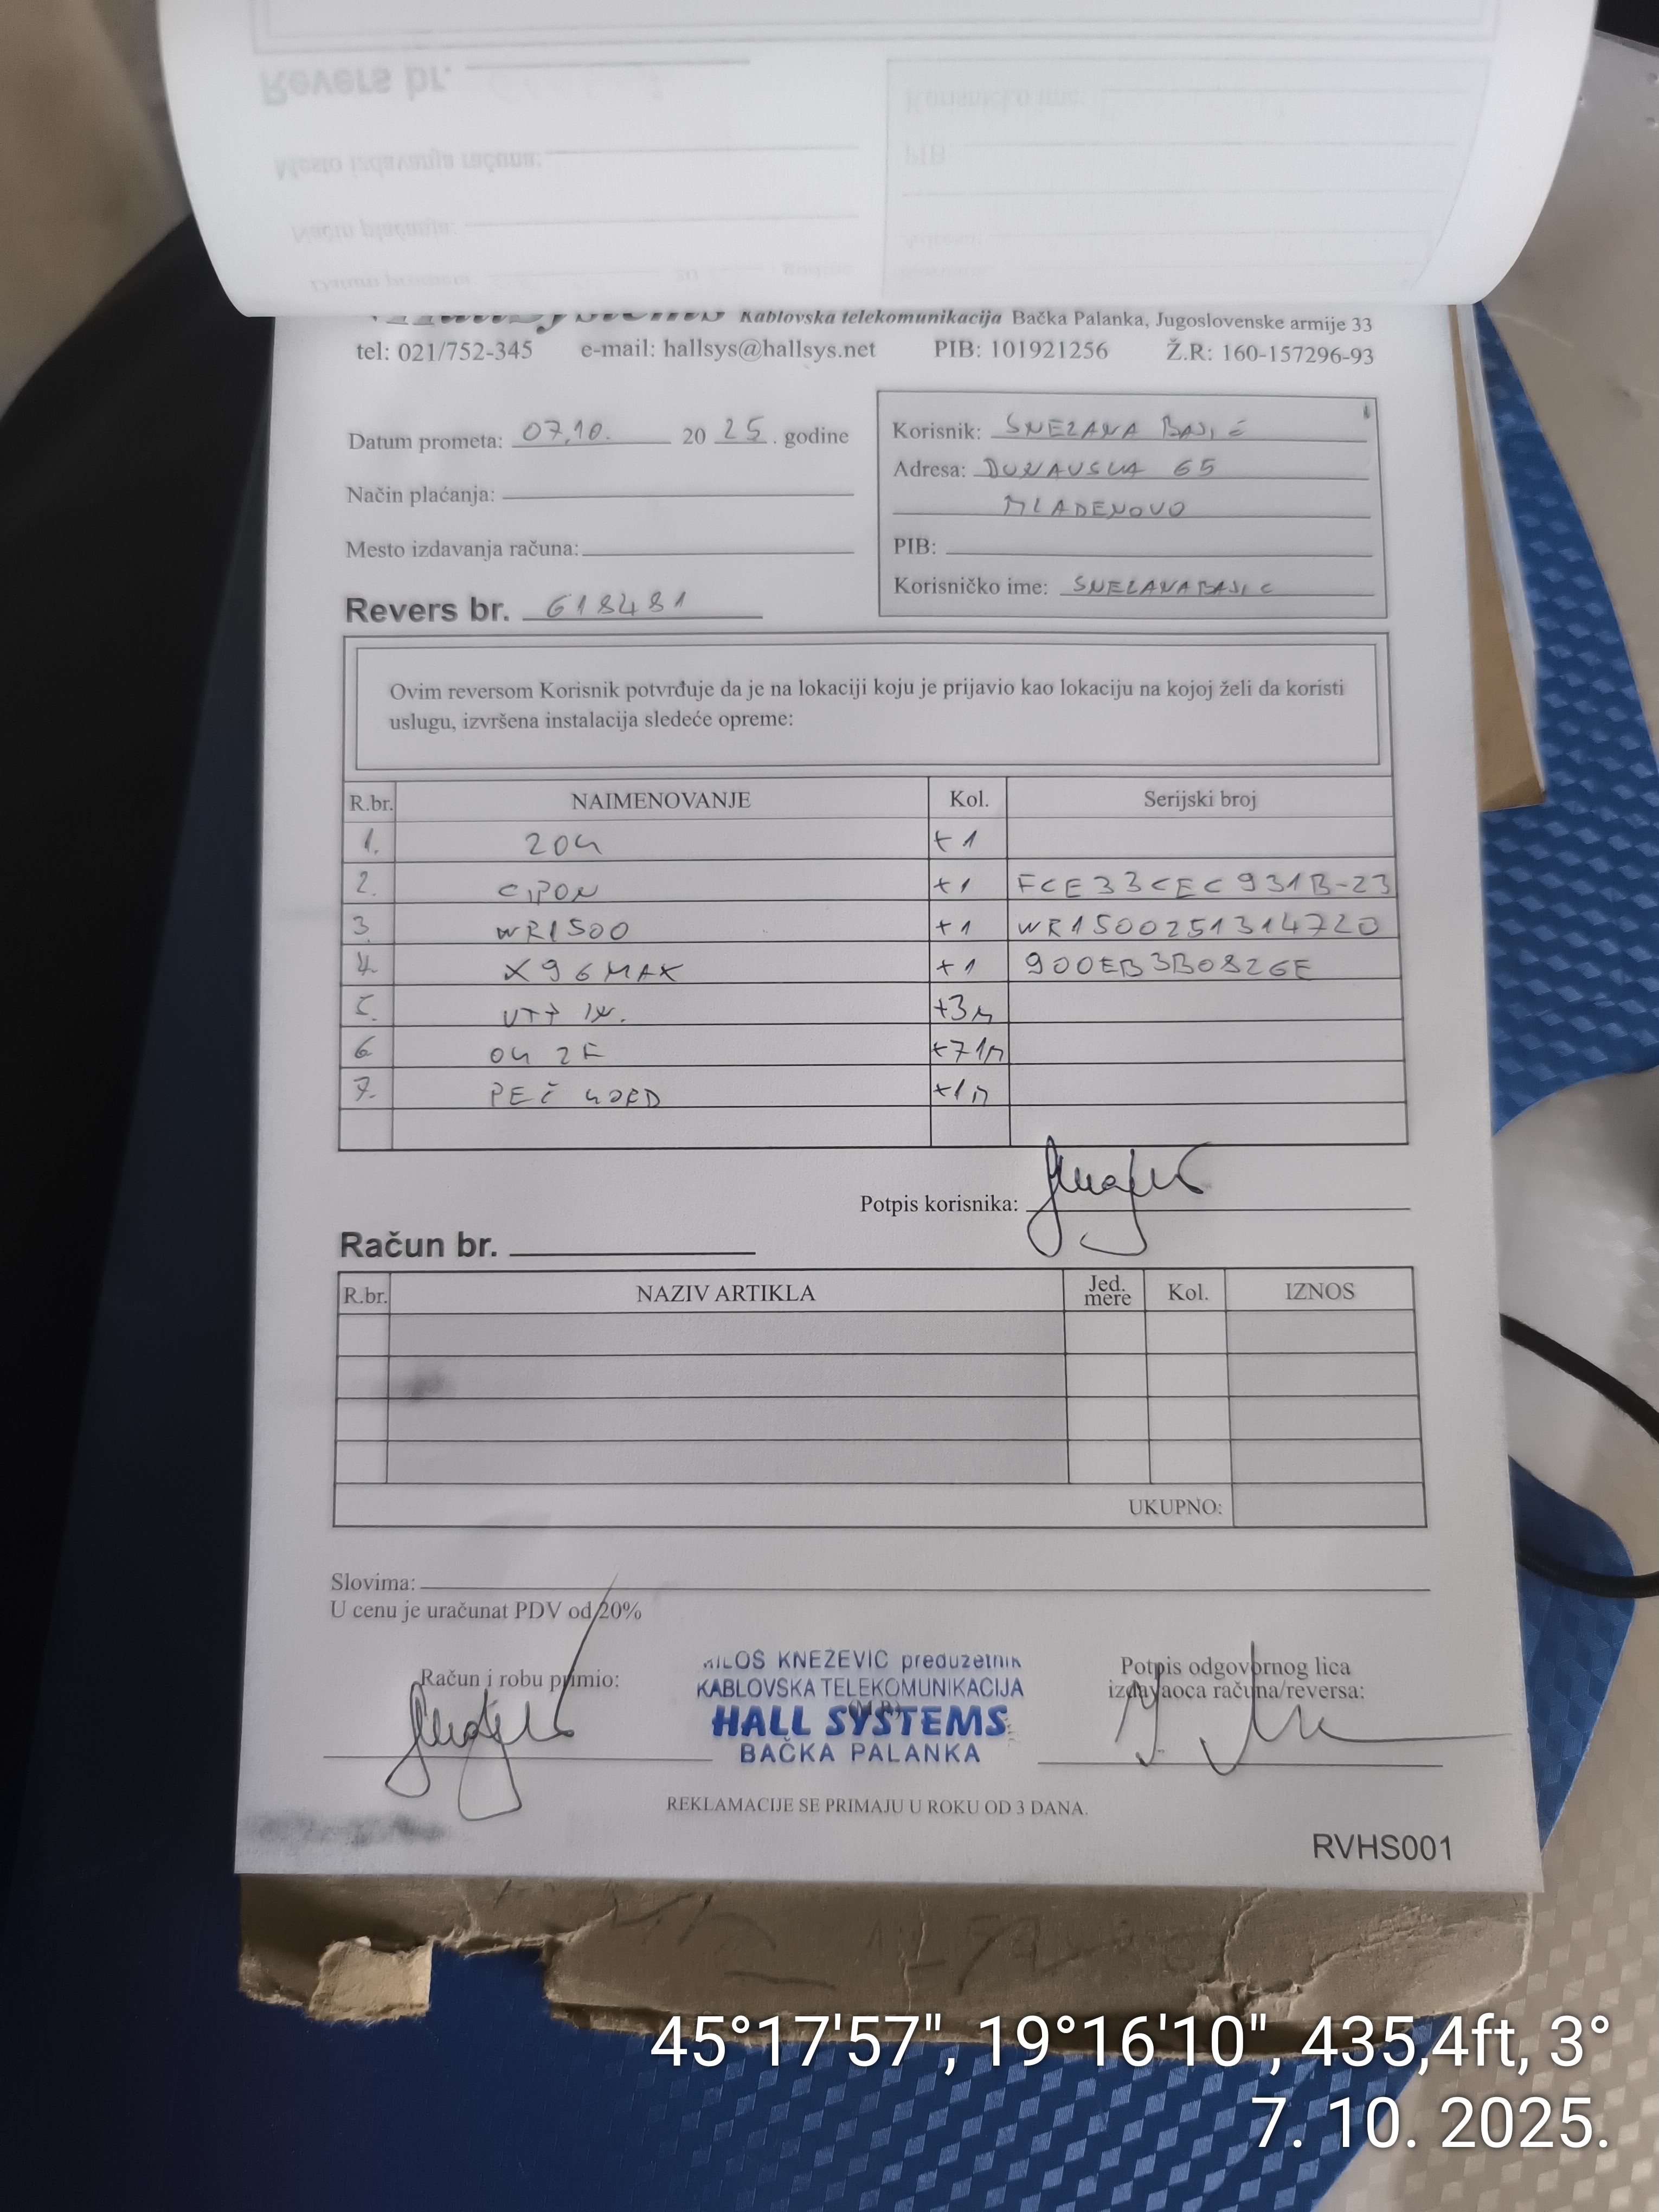 Kablovska telekomunikacija Bačka Palanka, Jugoslovenske armije 33
tel: 021/752-345 e-mail: hallsys@hallsys.net PIB: 101921256 Ž.R: 160-157296-93
Datum prometa: 07.10. 20 25. godine
Način plaćanja:
Mesto izdavanja računa:
Revers br. 618481
Korisnik: SNEZANA BAJIĆ
Adresa: DUNAVSKA 65
MLADENOVO
PIB:
Korisničko ime: SNEZANABAJIC
Ovim reversom Korisnik potvrđuje da je na lokaciji koju je prijavio kao lokaciju na kojoj želi da koristi
uslugu, izvršena instalacija sledeće opreme:
R.br. NAIMENOVANJE Kol. Serijski broj
1. ZOK +1
2. CIPON +1 FCE33CEC931B-23
3. WR1500 +1 WR1500251314720
4. X96MAX +1 900EB3B0826E
5. +3m
6. OK 2F +71m
7. PEČ +1m
Potpis korisnika:
Račun br.
R.br. NAZIV ARTIKLA Jed. mere Kol. IZNOS
UKUPNO:
Slovima:
U cenu je uračunat PDV od 20%
Račun i robu primio:
MILOŠ KNEŽEVIĆ preduzetnik
KABLOVSKA TELEKOMUNIKACIJA
(M.P.)
HALL SYSTEMS
BAČKA PALANKA
Potpis odgovornog lica
izdavaoca računa/reversa:
REKLAMACIJE SE PRIMAJU U ROKU OD 3 DANA.
RVHS001
45°17'57", 19°16'10", 435,4ft, 3°
7. 10. 2025.